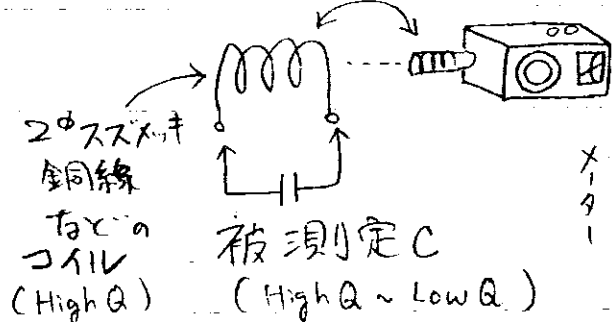 2φスズメッキ
銅線
などの
コイル
(High Q)
被測定C
(High Q ~ Low Q)
メーター